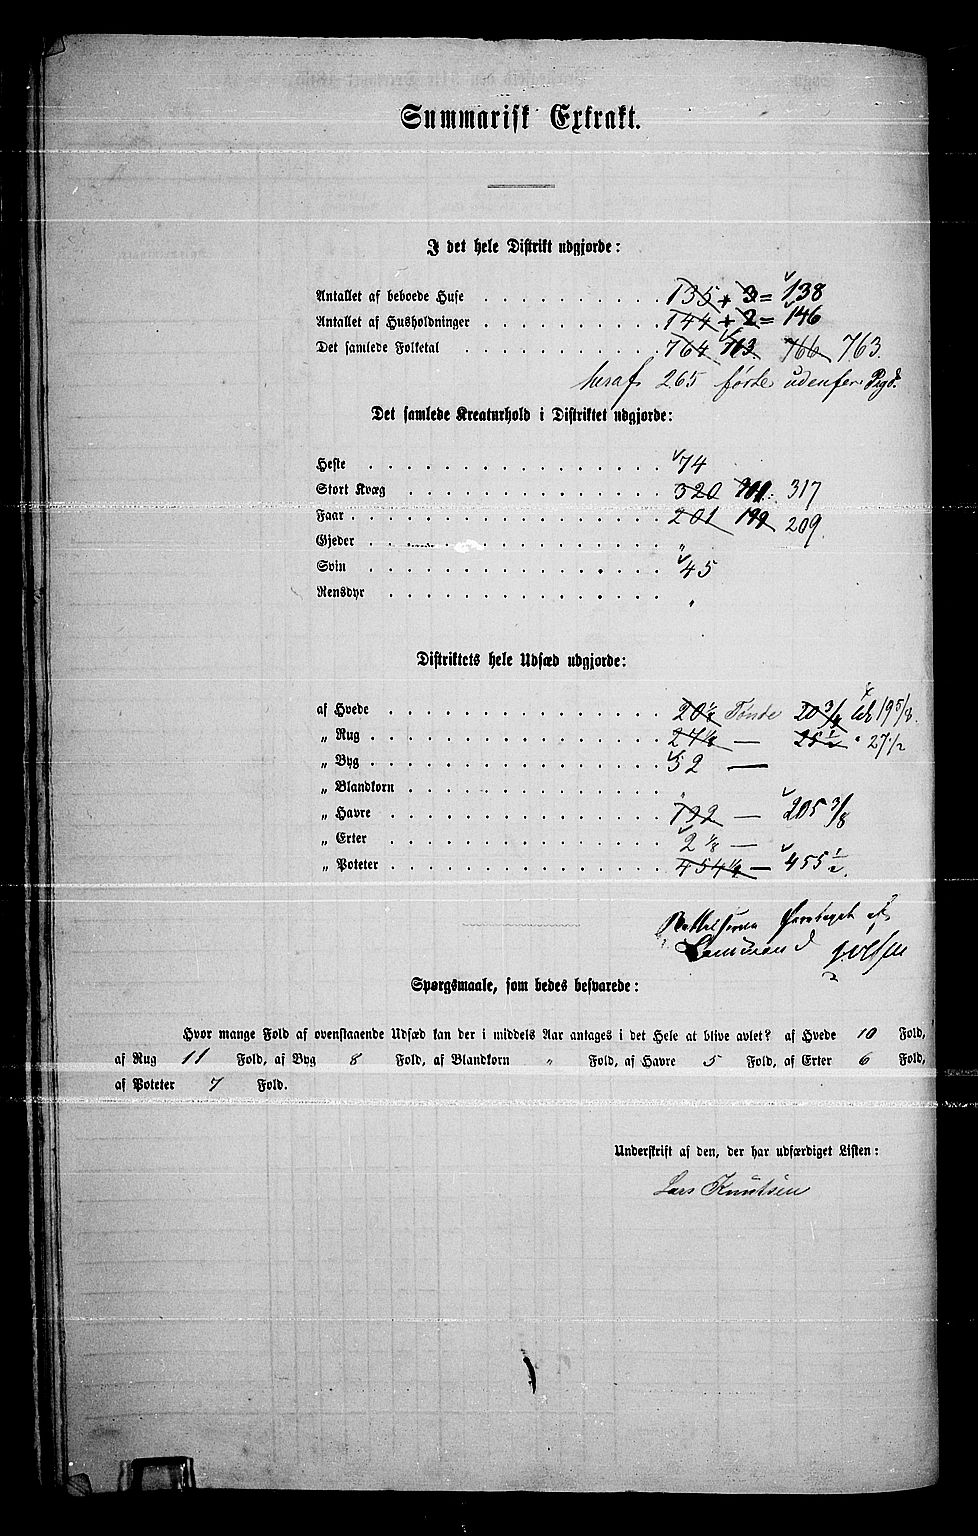 Summarisk Extrakt.
I det hele Distrikt udgjorde:
Antallet af beboede Huse 135 + 3 = 138
Antallet af Husholdninger 144 + 2 = 146
Det samlede Folketal 764 766 763.
heraf 265 fødte udenfor
Det samlede Kreaturhold i Distriktet udgjorde:
Heste 74
Stort Kvæg 320 317
Faar 201 199 209.
Gjeder "
Svin 45
Rensdyr "
Distriktets hele Udsæd udgjorde:
af Hvede Tønde 20 3/8 19 5/8.
" Rug — 25 1/2 " 27 1/2
" Byg 52 —
" Blandkorn "
" Havre 192 — 205 3/8
" Erter 2 1/8 —
" Poteter — 455 1/2.
Rettelserne foretaget af
Lensmand
Spørgsmaale, som bedes besvarede:
Hvor mange Fold af ovenstaaende Udsæd kan der i middels Aar antages i det Hele at blive avlet? af Hvede 10 Fold,
af Rug 11 Fold, af Byg 8 Fold, af Blandkorn " Fold, af Havre 5 Fold, af Erter 6 Fold,
af Poteter 7 Fold.
Underskrift af den, der har udfærdiget Listen:
Lars Knutsen